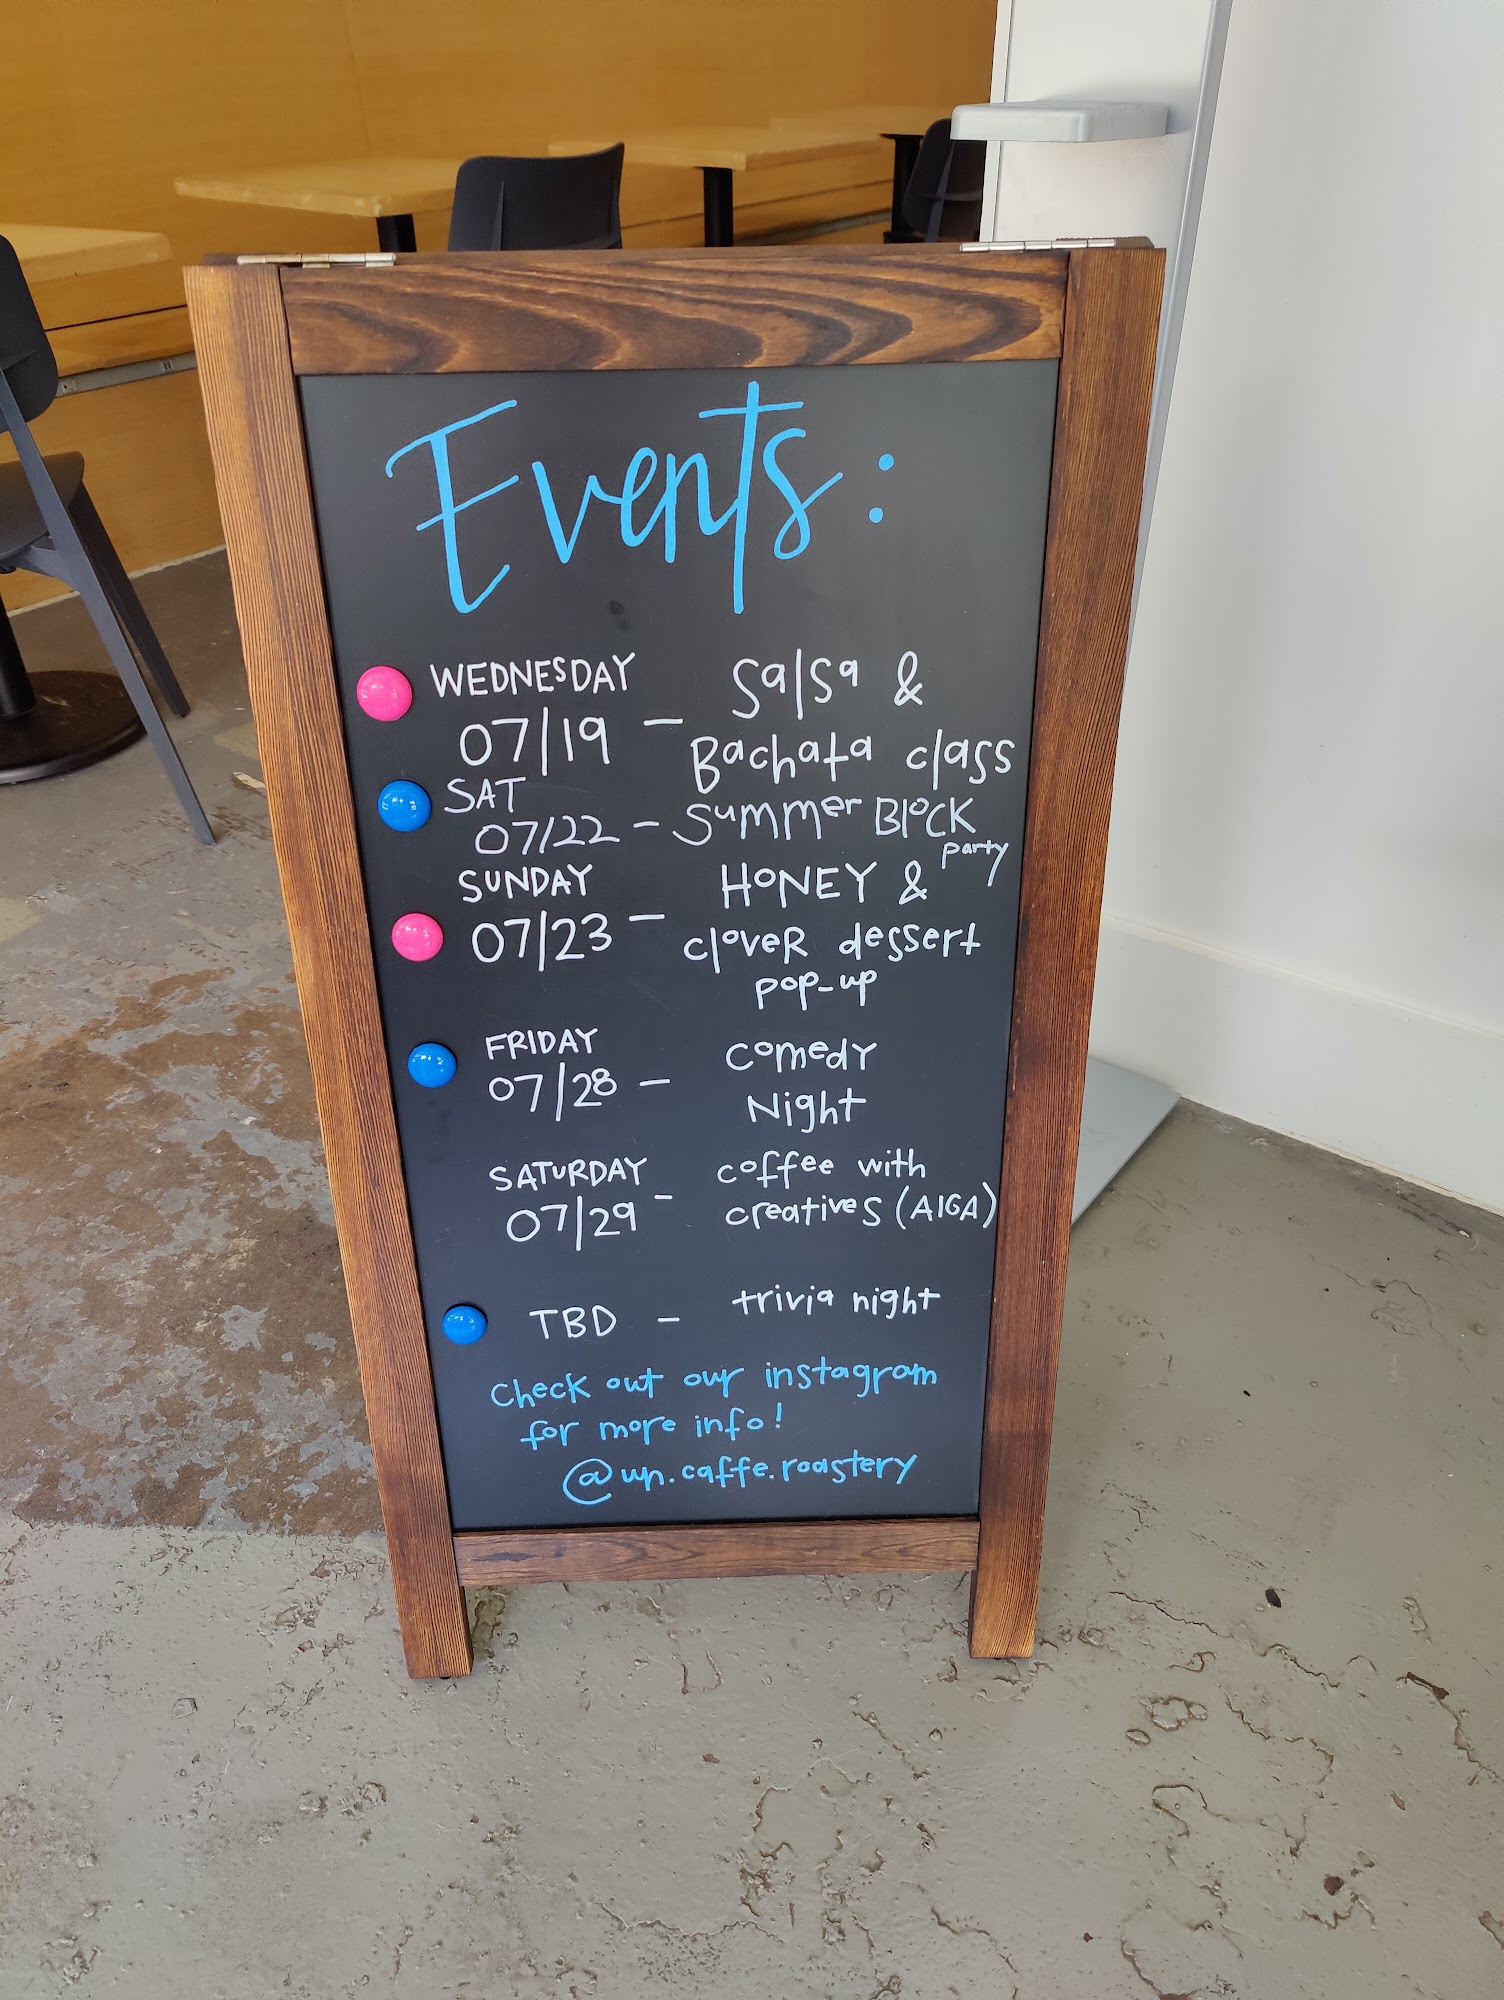 Events:
WEDNESDAY
07/19 - Salsa &
Bachata class
SAT
07/22 - Summer BLOCK
party
SUNDAY
07/23 - HONEY &
cloveR dessert
pop-up
FRIDAY
07/28 - comedy
Night
SATURDAY
07/29 - coffee with
creatives (AIGA)
TBD - trivia night
Check out our instagram
for more info!
@un.caffe.roastery